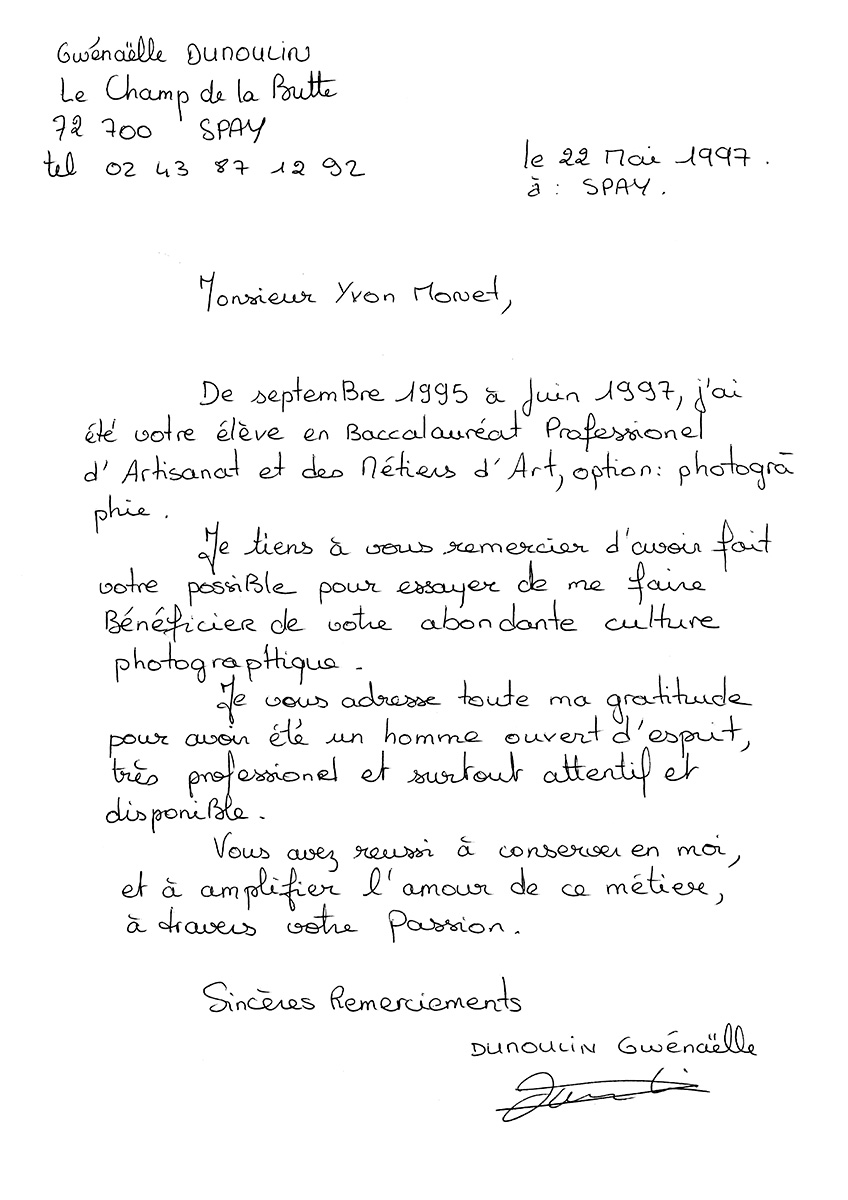 Gwénaëlle DUNOULIN
Le Champ de la Butte
72 700 SPAY
tel 02 43 87 12 92
le 22 Mai 1997.
à : SPAY.
Monsieur Yvon Monet,
De septemBre 1995 à Juin 1997, j'ai
été votre élève en Baccalauréat Professionel
d'Artisanat et des Métiers d'Art, option: photogra
phie.
Je tiens à vous remercier d'avoir fait
votre possiBle pour essayer de me faire
Bénéficier de votre abondante culture
photographique.
Je vous adresse toute ma gratitude
pour avoir été un homme ouvert d'esprit,
très professionel et surtout attentif et
disponiBle.
Vous avez reussi à conserver en moi,
et à amplifier l'amour de ce métier,
à travers votre Passion.
Sincères Remerciements
DUNOULIN Gwénaëlle